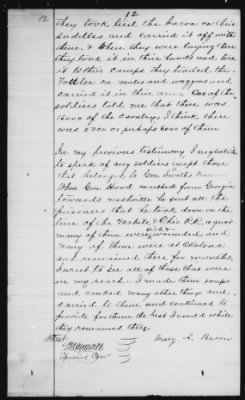 12
12
they took tied the bacon on their
saddles and carried it off with
them. & when they were laying there
they took it in their hands and tore
it to their camps they hauled the
Fodder on mules and waggons and
carried it in their arms. One of the
soldiers told me that there was
of the cavalry, I think there
was 5000 or perhaps 6000 of them
In my previous testimony I neglected
to speak of any soldiers except those
that belonged to Gen Smiths
When Gen Hood marched from Georgia
towards Nashville he sent all the
prisoners that he took down on the
line of the Mobile & Ohio R.R. a great
many of them were sick & wounded, and
many of them were at Okolona
and remained there for months.
I went to see all of those that were
in my reach. I made them soups
and cooked many other things and
carried to them and continued to
provide for them the best I could while
they remained there
Attest
Mary A. Bacon
Special Comr